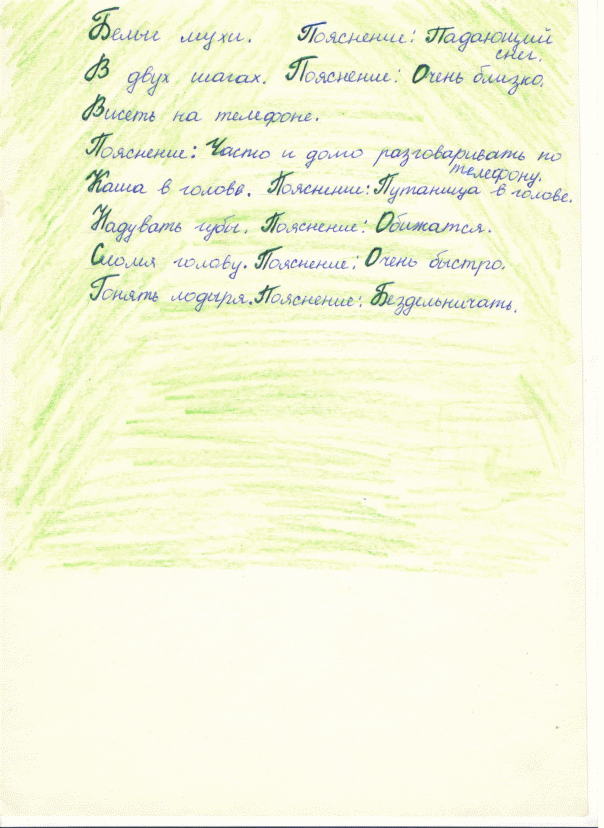 Белые мухи. Пояснение: Падающий
снег.
В двух шагах. Пояснение: Очень близко.
Висеть на телефоне.
Пояснение: Часто и долго разговаривать по
телефону.
Каша в голове. Пояснение: Путаница в голове.
Надувать губы. Пояснение: Обижатся.
Сломя голову. Пояснение: Очень быстро.
Гонять лодыря. Пояснение: Бездельничать.